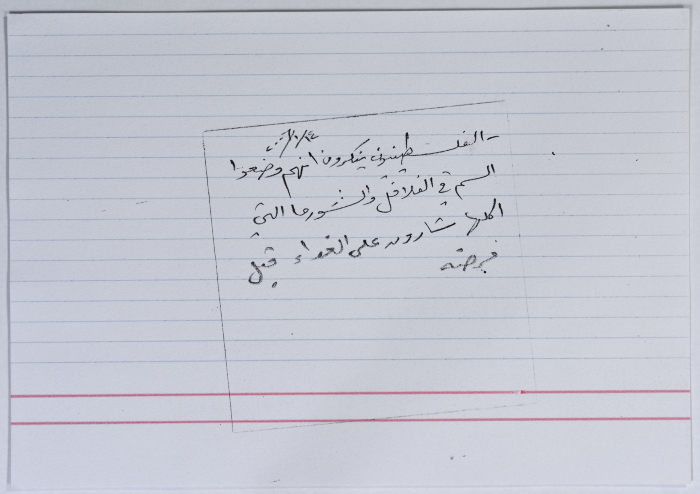 - الفلسطينيون ينكرون انهم وضعوا
السم في الفلافل والشورما التي
اكلها شارون على الغداء قبل
مرضه